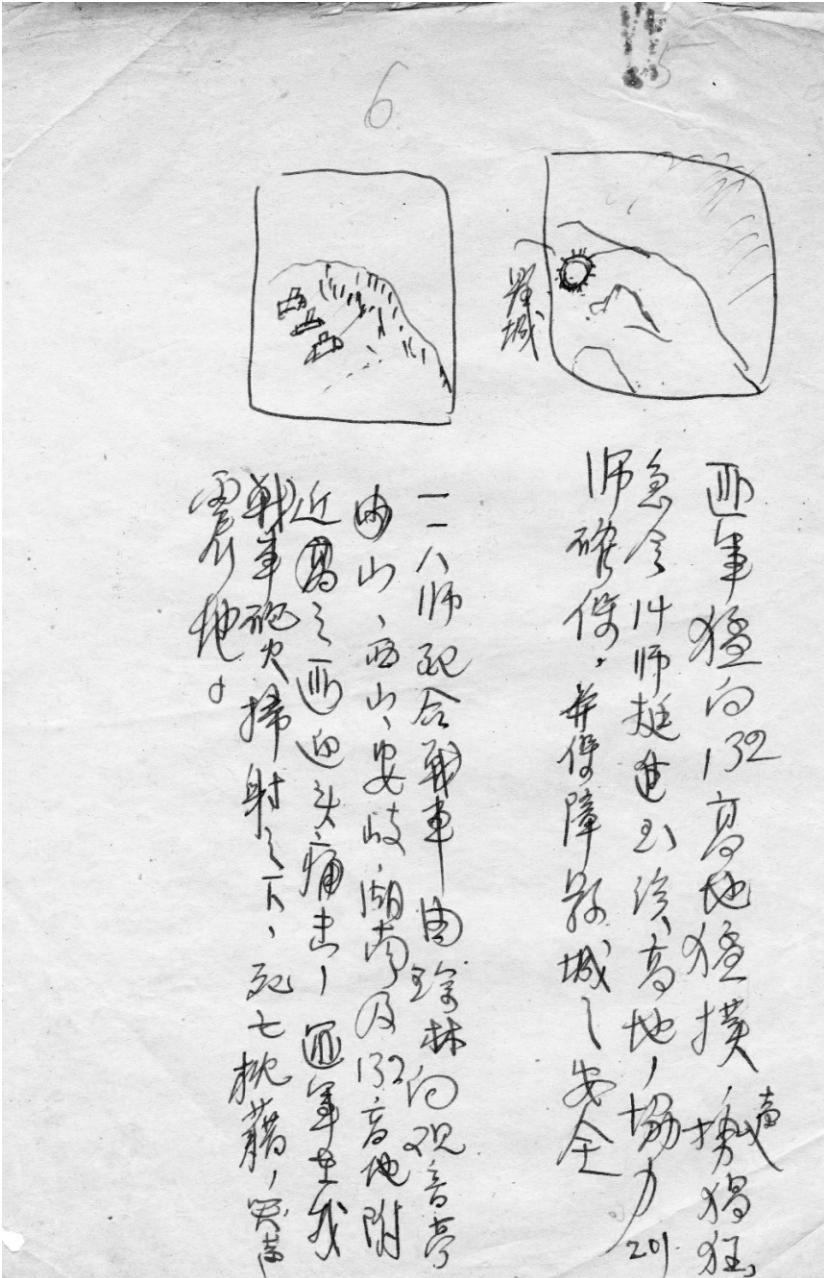 6
县城
匪軍猛向132高地猛撲，猖狂，
急令14师挺進到该高地，協力201
师確保，并保障县城之安全
一一八师配合戰車由瓊林向观音亭
山、西山、安岐、湖南及132高地附
近之匪迎头痛击，匪軍在我
戰車砲火掃射之下，死亡枕藉，哭声
震地。